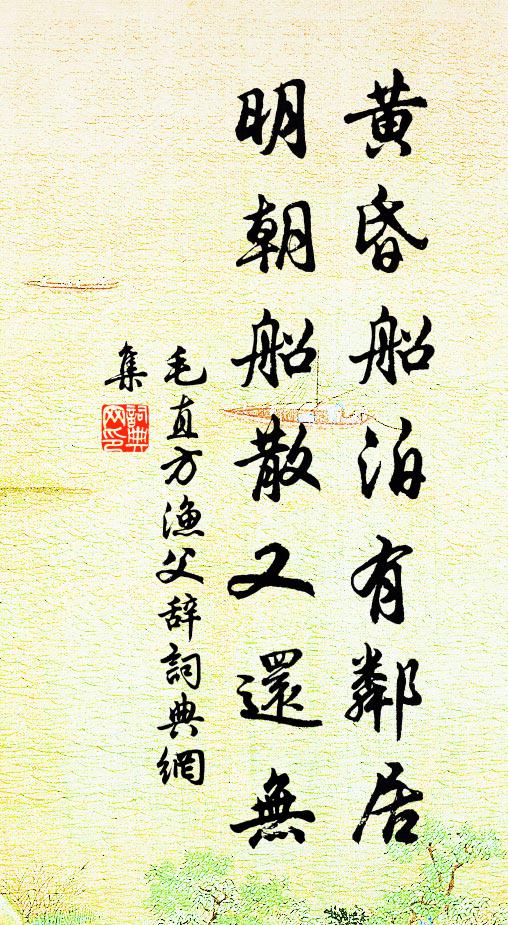 黄昏船泊有鄰居
明朝船散又還無
毛直方漁父辞詞典網
集
詞典
网印